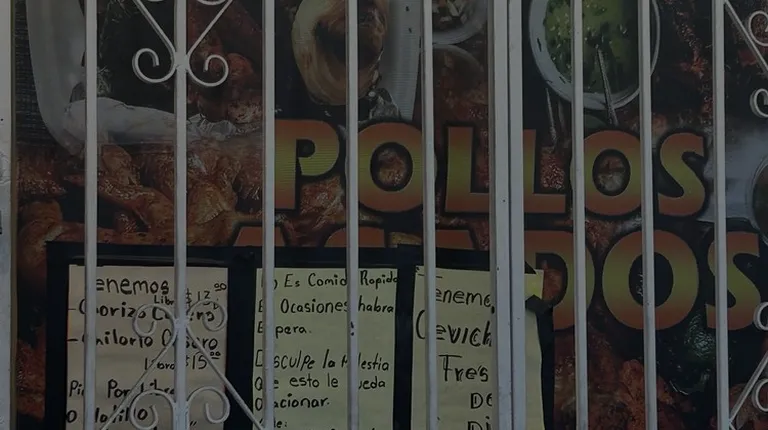 POLLOS
ASADOS
Tenemos
Libra $12.00
-Chorizo Casero
-Chilorio Casero
Libra $15.00
Por Libra
No Es Comida Rapida
En Ocasiones habra
Espera.
Disculpe la Molestia
que esto le pueda
Ocacionar.
Tenemos
Ceviche
Fres
De